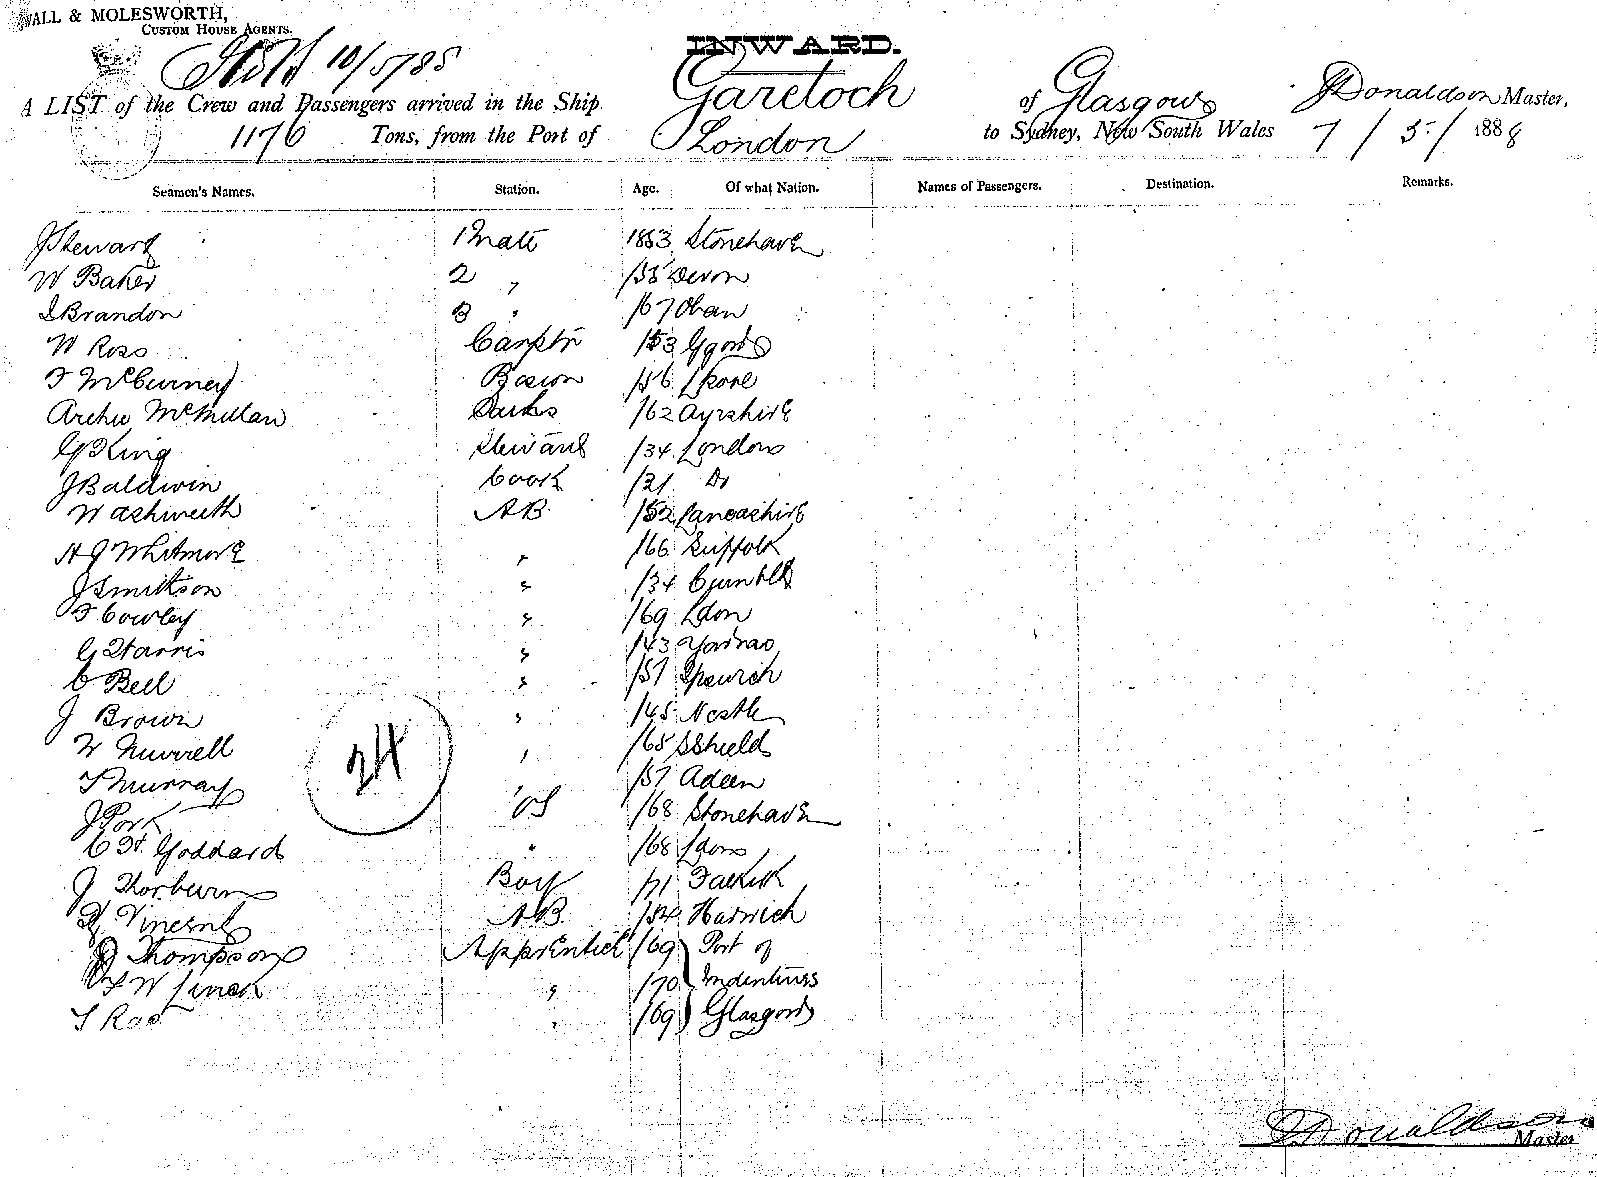 WALL & MOLESWORTH,
CUSTOM HOUSE AGENTS.
10/5/88
INWARD.
A LIST of the Crew and Passengers arrived in the Ship Gareloch of Glasgow J Donaldson Master,
1176 Tons, from the Port of London to Sydney, New South Wales 7 / 5 / 1888
Seamen's Names. Station. Age. Of what Nation. Names of Passengers. Destination. Remarks.
J Steward 1 Mate 1853 Stonehaven
W Baker 2 " /55 Devon
J Brandon 3 " /67 Oban
W Ross Carptr /53 Ggow
T McBurney Bosun /56 Lpool
Archie McMillan /62 Ayrshire
G King Steward /34 London
J Baldwin Cook /31 Do
W Ashworth AB /52 Lancashire
H J Whitmore " /66 Suffolk
J Smithson " /34
T Cowley " /69 Ldon
G Harris " /43
C Bell " /57 Ipswich
J Brown " /45 Ncstle
W " /65 SShields
T Murray " /57 Adeen
J York OS /68 Stonehaven
C H Goddard " /68 Ldon
J Thorburn Boy /71 Falkirk
AB /54 Harwich
J Thompson Apprentice /69 Port of
F W Linck " /70 Indentures
T Rae " /69 Glasgow
24
J Donaldson
Master